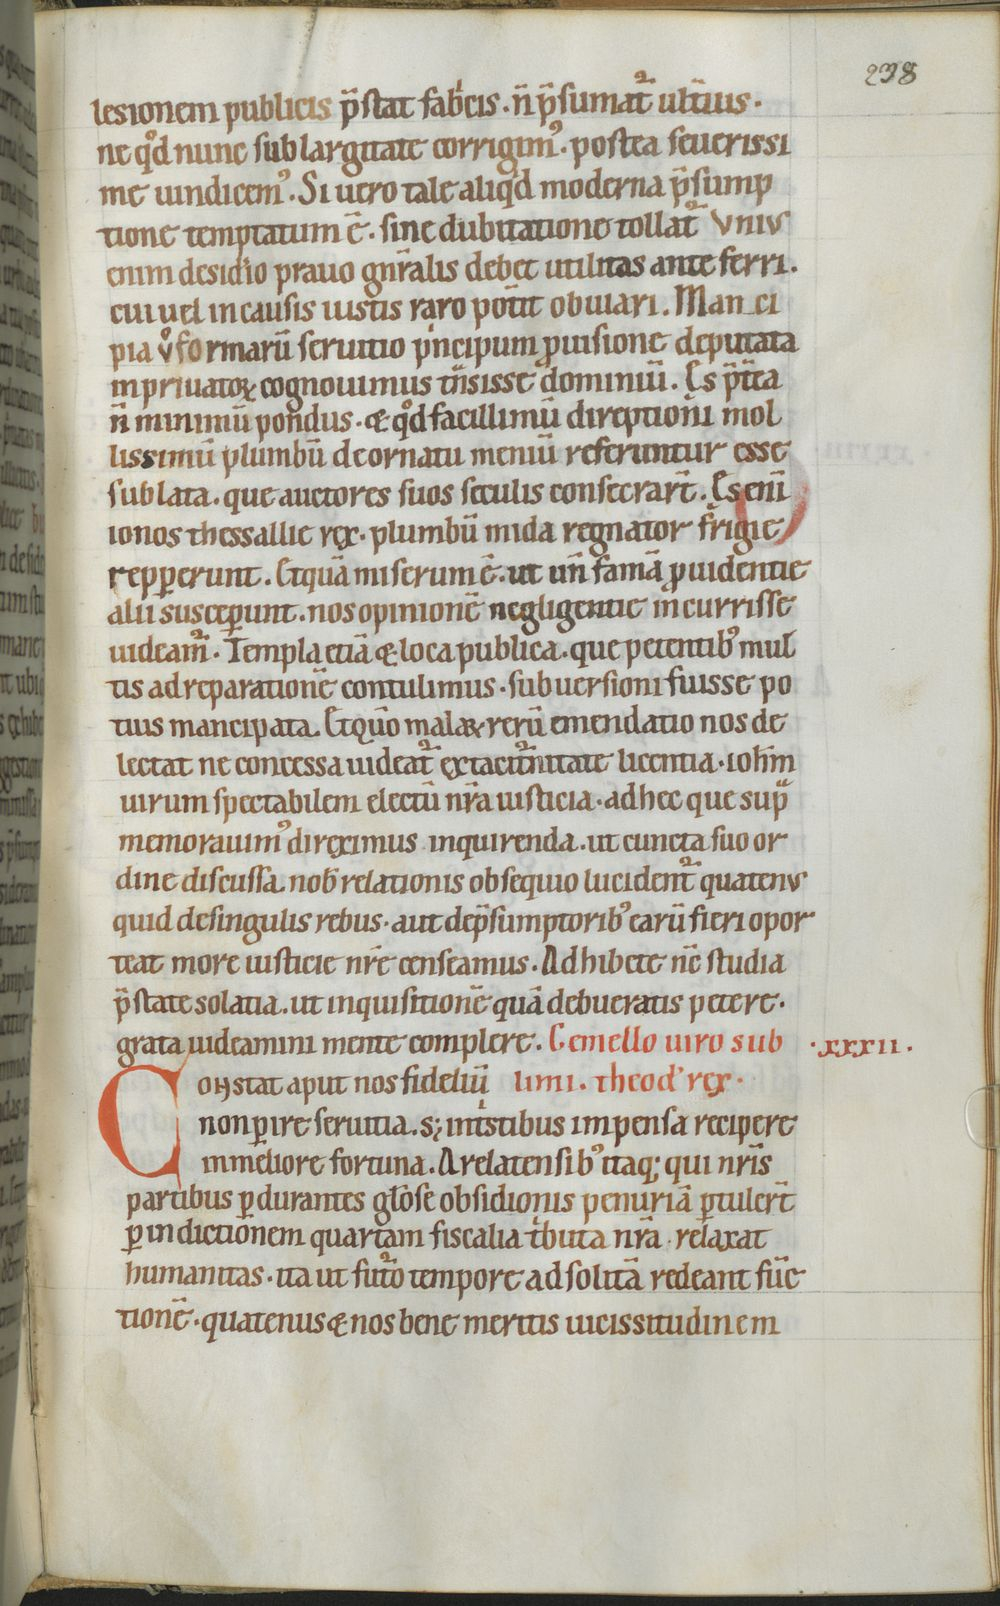 238
lesionem publicis p̄stat fab̓cis. n̄ p̄sumat᷑ ult̄ius.
ne qͦd nunc sub largitate corrigim᷒. postea seuerissi
me uindicem᷒. Si uero tale aliq̓d moderna p̄sump
tione temptatum ē. sine dubitatione tollat᷑ Vniꝰ
enim desidio prauo gn̄ralis debet utilitas ante ferri.
cui uel in causis iustis raro pot̄it obuiari. Man ci
pia v̊ formarū seruitio p̓ncipum ꝓuisione deputata
in priuatoꝝ cognouimus tn̄sisse dominiū. Es p̄t̄ea
n̄ minimū pondus. & qͦd facillimū direptioni mol
lissimū plumbū de ornatu meniū referuntur esse
sublata. que auctores suos seculis consecrart̄. Es enī
ionos thessallie rex. plumbū mida regnator frigie
repꝑerunt. Et quā miserum ē. ut un̄ famā ꝓuidentie
alii susceꝑunt. nos opinionē negligentie incurrisse
uideam᷑. Templa etiā & loca publica. que petentib᷒ mul
tis ad reparationē contulimus. subuersioni fuisse po
tius mancipata. Et quō malaꝝ rerū emendatio nos de
lectat ne concessa uideat᷑ ex taciturnitate licentia. ioh̄m
uirum spectabilem electū nr̄a iusticia. ad hec que sup̄
memorauim᷒ direximus inquirenda. ut cuncta suo or
dine discussa. nob̄ relationis obsequio lucident᷑ quatenꝰ
quid de singulis rebus. aut de p̄sumptorib᷒ earū fieri opor
teat more iusticie nr̄e censeamus. Adhibete nc̄ studia
p̄state solatia. ut inquisitionē quā debueratis petere.
grata uideamini mente complere. Gemello uiro sub
·xxxii.
Constat aput nos fideliū limi. theod̓ rex.
non ꝑire seruitia. sꝫ int̓stibus impensa recipere
in meliore fortuna. Arelatensib᷒ itaqꝫ qui nr̄is
partibus ꝑdurantes glōse obsidionis penuriā ꝑtulert̄
ꝑ indictionem quartam fiscalia t̓buta nr̄a relaxat
humanitas. ita ut fut᷑o tempore ad solitā redeant fūc
tionē. quatenus & nos bene meritis uicissitudinem